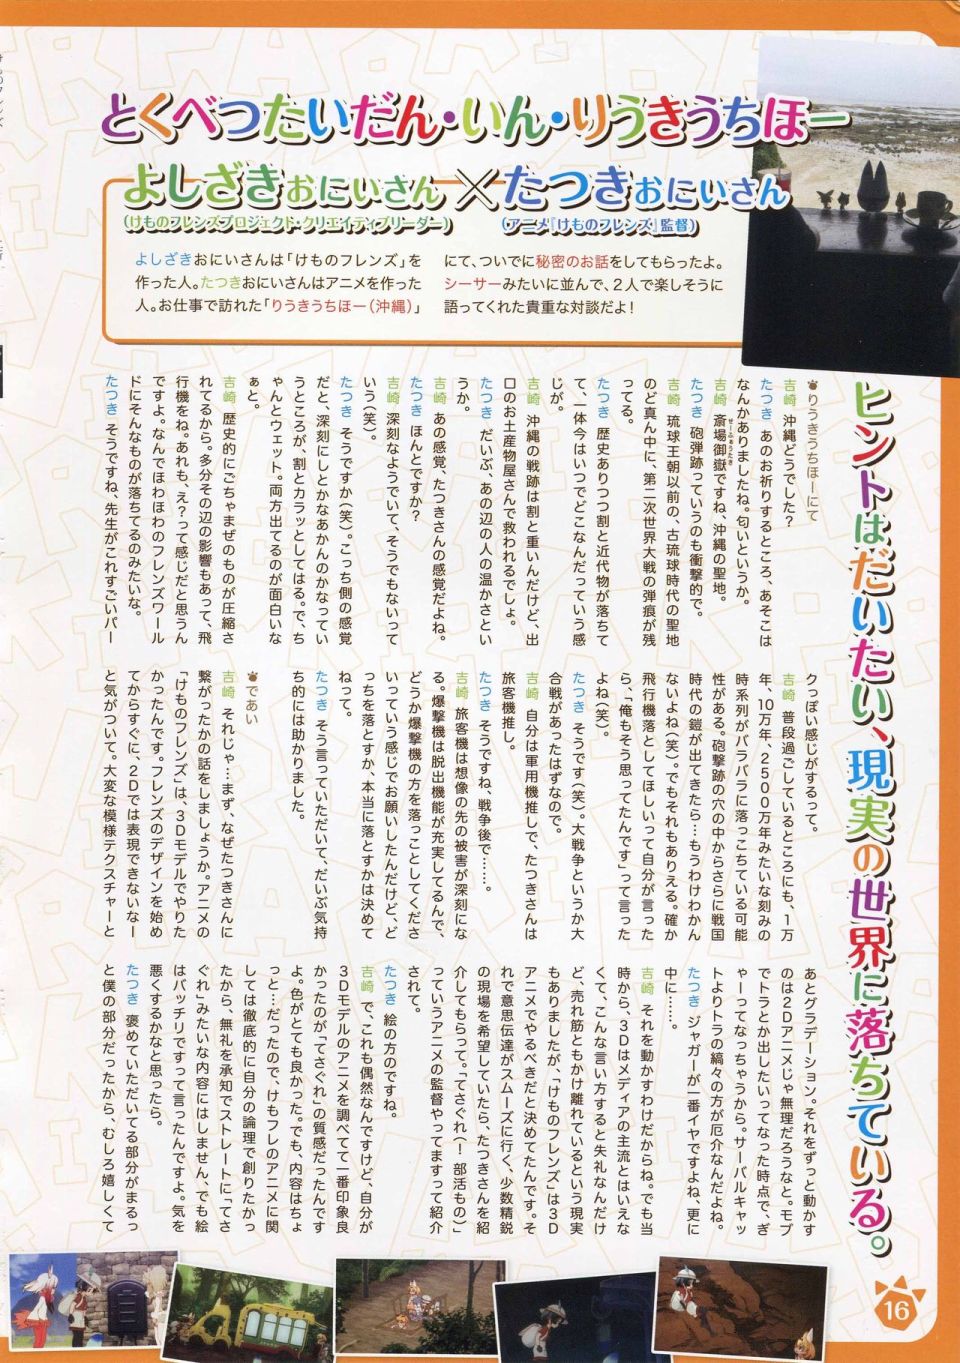 とくべつたいだん・いん・りうきうちほー
よしざきおにいさん×たつきおにいさん
(けものフレンズプロジェクト・クリエイティブリーダー)
(アニメ『けものフレンズ』監督)
よしざきおにいさんは「けものフレンズ」を
作った人。たつきおにいさんはアニメを作った
人。お仕事で訪れた「りうきうちほー(沖縄)」
にて、ついでに秘密のお話をしてもらったよ。
シーサーみたいに並んで、2人で楽しそうに
語ってくれた貴重な対談だよ!
ヒントはだいたい、現実の世界に落ちている。
りうきうちほーにて
吉崎 沖縄どうでした?
たつき あのお祈りするところ、あそこは
なんかありましたね。匂いというか。
吉崎 斎場御嶽ですね、沖縄の聖地。
せーふぁうたき
たつき 砲弾跡っていうのも衝撃的で。
吉崎 琉球王朝以前の、古琉球時代の聖地
のど真ん中に、第二次世界大戦の弾痕が残
ってる。
たつき 歴史ありつつ割と近代物が落ちて
て、一体今はいつでどこなんだっていう感
じが。
吉崎 沖縄の戦跡は割と重いんだけど、出
口のお土産物屋さんで救われるでしょ。
たつき だいぶ、あの辺の人の温かさとい
うか。
吉崎 あの感覚、たつきさんの感覚だよね。
たつき ほんとですか?
吉崎 深刻なようでいて、そうでもないって
いう(笑)。
たつき そうですか(笑)。こっち側の感覚
だと、深刻にしとかなあかんのかなってい
うところが、割とカラッとしてはる。で、ち
ゃんとウェット。両方出てるのが面白いな
ぁと。
吉崎 歴史的にごちゃまぜのものが圧縮さ
れてるから。多分その辺の影響もあって、飛
行機をね。あれも、え?って感じだと思うん
ですよ。なんでほわほわのフレンズワール
ドにそんなものが落ちてるのみたいな。
たつき そうですね、先生がこれすごいパー
クっぽい感じがするって。
吉崎 普段過ごしているところにも、1万
年、10万年、2500万年みたいな刻みの
時系列がバラバラに落っこちている可能
性がある。砲撃跡の穴の中からさらに戦国
時代の鎧が出てきたら…もうわけわかん
ないよね(笑)。でもそれもありえる。確か
飛行機落としてほしいって自分が言った
ら、「俺もそう思ってたんです」って言った
よね(笑)。
たつき そうです(笑)。大戦争というか大
合戦があったはずなので。
吉崎 自分は軍用機推しで、たつきさんは
旅客機推し。
たつき そうですね、戦争後で……。
吉崎 旅客機は想像の先の被害が深刻にな
る。爆撃機は脱出機能が充実してるんで、
どうか爆撃機の方を落っことしてくださ
いっていう感じでお願いしたんだけど、ど
っちを落とすか、本当に落とすかは決めて
ねって。
たつき そう言っていただいて、だいぶ気持
ち的には助かりました。
であい
吉崎 それじゃ…まず、なぜたつきさんに
繋がったかの話をしましょうか。アニメの
「けものフレンズ」は、3Dモデルでやりた
かったんです。フレンズのデザインを始め
てからすぐに、2Dでは表現できないなー
と気がついて。大変な模様テクスチャーと
あとグラデーション。それをずっと動かす
のは2Dアニメじゃ無理だろうなと。モブ
でトラとか出したいってなった時点で、ぎ
ゃーってなっちゃうから。サーバルキャッ
トよりトラの縞々の方が厄介なんだよね。
たつき ジャガーが一番イヤですよね、更に
中に……。
吉崎 それを動かすわけだからね。でも当
時から、3Dはメディアの主流とはいえな
くて、こんな言い方すると失礼なんだけ
ど、売れ筋ともかけ離れているという現実
もありましたが、「けものフレンズ」は3D
アニメでやるべきだと決めてたんです。そ
れで意思伝達がスムーズに行く、少数精鋭
の現場を希望していたら、たつきさんを紹
介してもらって。「てさぐれ(!部活もの)」
っていうアニメの監督やってますって紹介
されて。
たつき 絵の方のですね。
吉崎 で、これも偶然なんですけど、自分が
3Dモデルのアニメを調べてて一番印象良
かったのが「てさぐれ」の質感だったんです
よ。色がとても良かった。でも、内容はちょ
っと…だったので、けもフレのアニメに関
しては徹底的に自分の論理で創りたかっ
たから、無礼を承知でストレートに「てさ
ぐれ」みたいな内容にはしません、でも絵
はバッチリですって言ったんですよ。気を
悪くするかなと思ったら。
たつき 褒めていただいてる部分がまるっ
と僕の部分だったから、むしろ嬉しくて
16